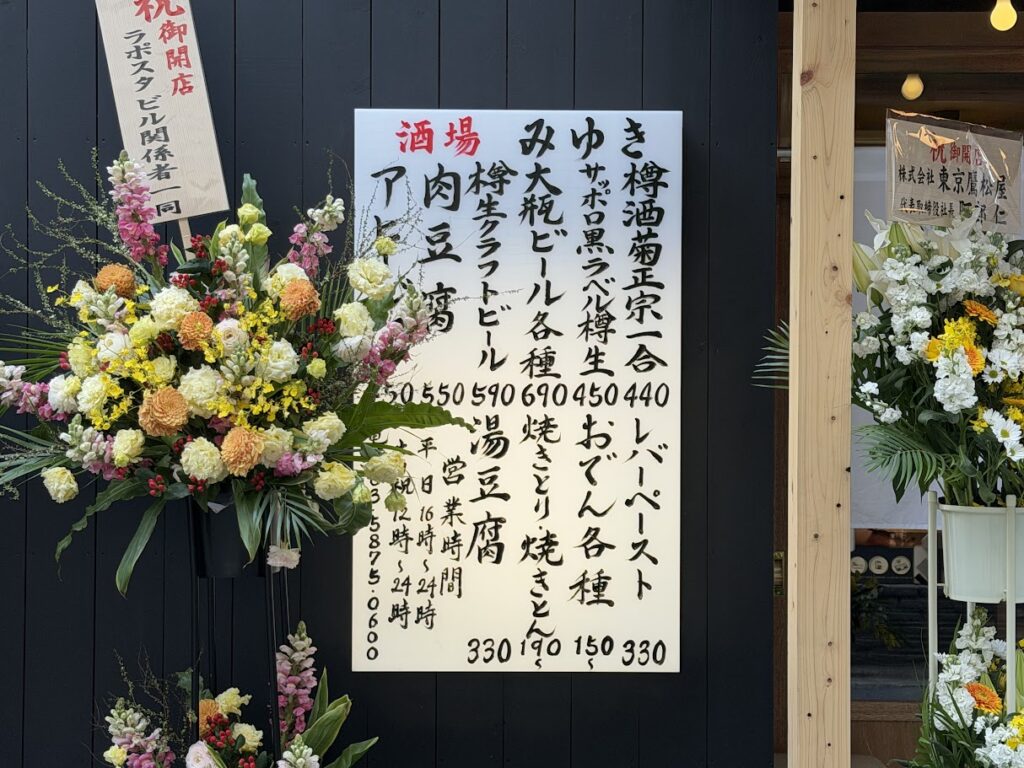 祝御開店
ラボスタビル関係者一同
酒場 みゆき
樽酒菊正宗一合 440
サッポロ黒ラベル樽生 450
大瓶ビール各種 690
樽生クラフトビール 590
肉豆腐 550
レバーペースト 330
おでん各種 150~
焼きとり 焼きとん 190~
湯豆腐 330
営業時間
平日16時~24時
土祝12時~24時
5875-0600
祝御開店
株式会社 東京鷹松屋
代表取締役社長